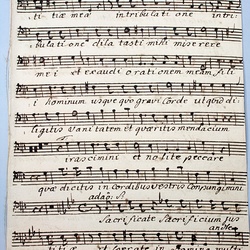 ti tiæ meæ in tribulati one intri
bulati one dila tasti mihi myserere
mei et exaudi orationem meam fili
i hominum usque quo gravi Corde ut quid di
ligitis vanitatem et quæritis mendacium
irascimini et nolite peccare
quæ dicitis in cordibus vestris Conpungimini
adago: So
Sacrificate Sacrificium jus
andte
titiæ et sperate in domino